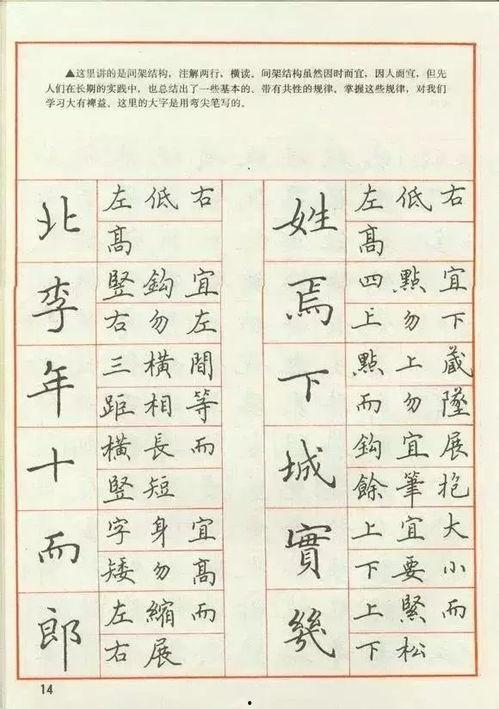 ▲这里讲的是间架结构，注解两行，横读。间架结构虽然因时而宜，因人而宜，但先
人们在长期的实践中，也总结出了一些基本的、带有共性的规律，掌握这些规律，对我们
学习大有裨益。这里的大字是用弯尖笔写的。
北
左低右
髙
李
竪鈎宜
右勿左
年
三橫間
距相等
十
橫長而
竪短
而
字身宜
矮勿髙
郎
左縮而
右展
姓
左低右
髙
焉
四點宜
上勿下
下
點上藏
而勿墜
城
鈎宜展
餘筆抱
實
上宜大
下要小
幾
上緊而
下松
14